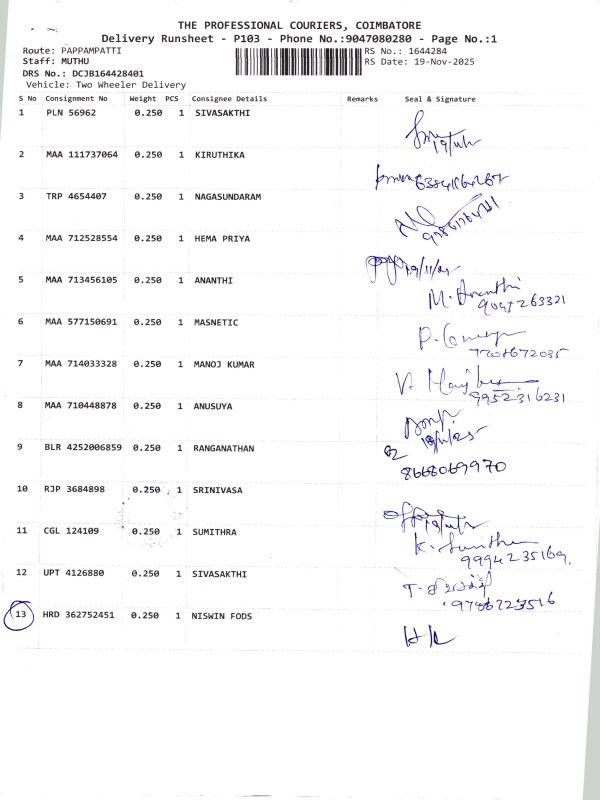 THE PROFESSIONAL COURIERS, COIMBATORE
Delivery Runsheet - P103 - Phone No.:9047080280 - Page No.:1
Route: PAPPAMPATTI RS No.: 1644284
Staff: MUTHU RS Date: 19-Nov-2025
DRS No.: DCJB164428401
Vehicle: Two Wheeler Delivery
S No Consignment No Weight PCS Consignee Details Remarks Seal & Signature
1 PLN 56962 0.250 1 SIVASAKTHI
2 MAA 111737064 0.250 1 KIRUTHIKA
3 TRP 4654407 0.250 1 NAGASUNDARAM
4 MAA 712528554 0.250 1 HEMA PRIYA
5 MAA 713456105 0.250 1 ANANTHI
M. Ananthi
6 MAA 577150691 0.250 1 MASNETIC
7 MAA 714033328 0.250 1 MANOJ KUMAR
9952316231
8 MAA 710448878 0.250 1 ANUSUYA
9 BLR 4252006859 0.250 1 RANGANATHAN
8668069970
10 RJP 3684898 0.250 1 SRINIVASA
11 CGL 124109 0.250 1 SUMITHRA
9994235169.
12 UPT 4126880 0.250 1 SIVASAKTHI
13 HRD 362752451 0.250 1 NISWIN FODS